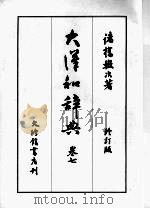 諸橋轍次著
大漢和辞典 巻七
修訂版
大修館書店刊